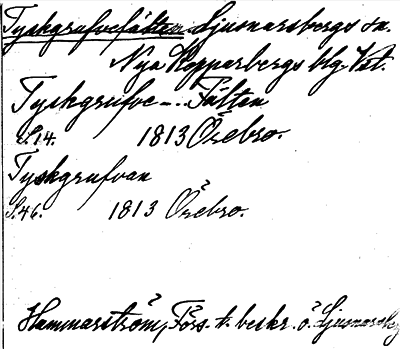 Tyskgrufvefälten Ljusnarsbergs sn.
Nya Kopparbergs blg. Vst.
Tyskgrufve-.. Fälten
S. 14. 1813 Örebro.
Tyskgrufvan
S. 46. 1813 Örebro.
Hammarström, Förs. t. beskr. ö. Ljusnarsbg